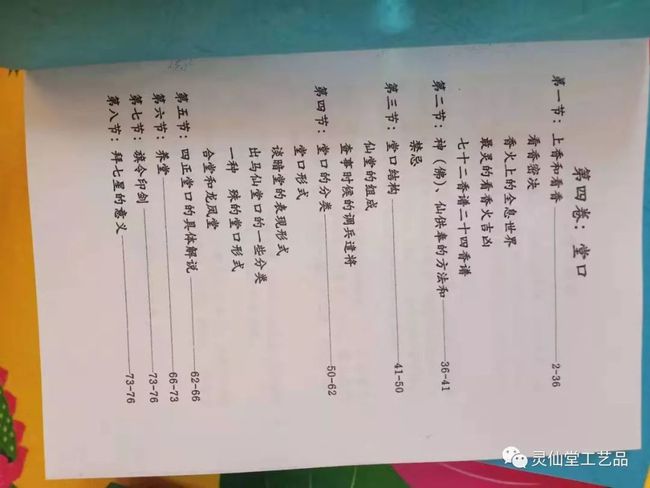 第四卷：堂口
第一节：上香和看香——2-36
看香密决
香火上的全息世界
最灵的看香火吉凶
七十二香谱二十四香谱
第二节：神（佛）、仙供奉的方法和
禁忌——36-41
第三节：堂口结构——41-50
仙堂的组成
查事时候的调兵遣将
第四节：堂口的分类——50-62
堂口形式
谈暗堂的表现形式
出马仙堂口的一些分类
一种 殊的堂口形式
合堂和龙凤堂
第五节：四正堂口的具体解说——62-66
第六节：养堂——66-73
第七节：旗令印剑——73-76
第八节：拜七星的意义——73-76
灵仙堂工艺品